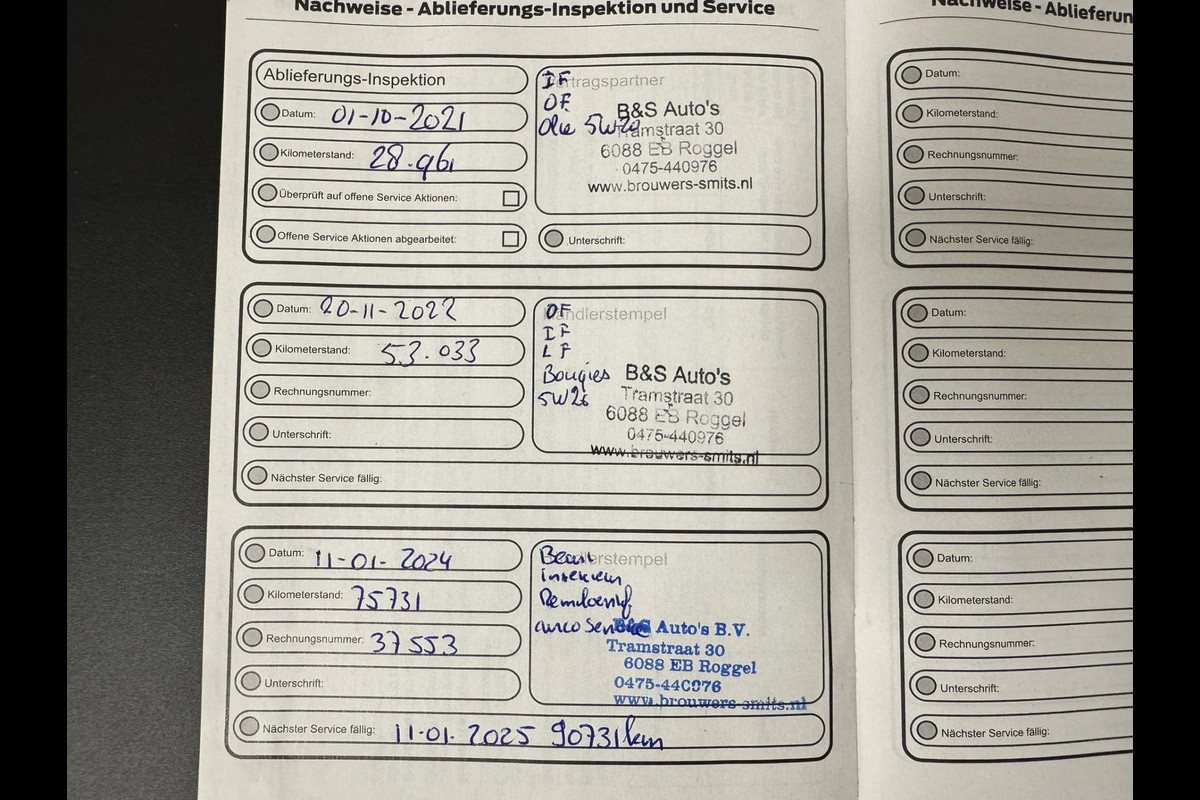 Nachweise - Ablieferungs-Inspektion und Service
Ablieferungs-Inspektion
Datum: 01-10-2021
Kilometerstand: 28.961
Überprüft auf offene Service Aktionen:
Offene Service Aktionen abgearbeitet:
IF
OF
Olie 5W20
B&S Auto's
Tramstraat 30
6088 EB Roggel
0475-440976
www.brouwers-smits.nl
Unterschrift:
Datum: 20-11-2022
Kilometerstand: 53.033
Rechnungsnummer:
Unterschrift:
Nächster Service fällig:
OF
IF
LF
Bougies
B&S Auto's
Tramstraat 30
6088 EB Roggel
0475-440976
www.brouwers-smits.nl
Datum: 11-01-2024
Kilometerstand: 75731
Rechnungsnummer: 37553
Unterschrift:
Nächster Service fällig: 11-01-2025 90731km
B&S Auto's B.V.
Tramstraat 30
6088 EB Roggel
0475-440976
www.brouwers-smits.nl
Datum:
Kilometerstand:
Rechnungsnummer:
Unterschrift:
Nächster Service fällig:
Datum:
Kilometerstand:
Rechnungsnummer:
Unterschrift:
Nächster Service fällig:
Datum:
Kilometerstand:
Rechnungsnummer:
Unterschrift:
Nächster Service fällig: